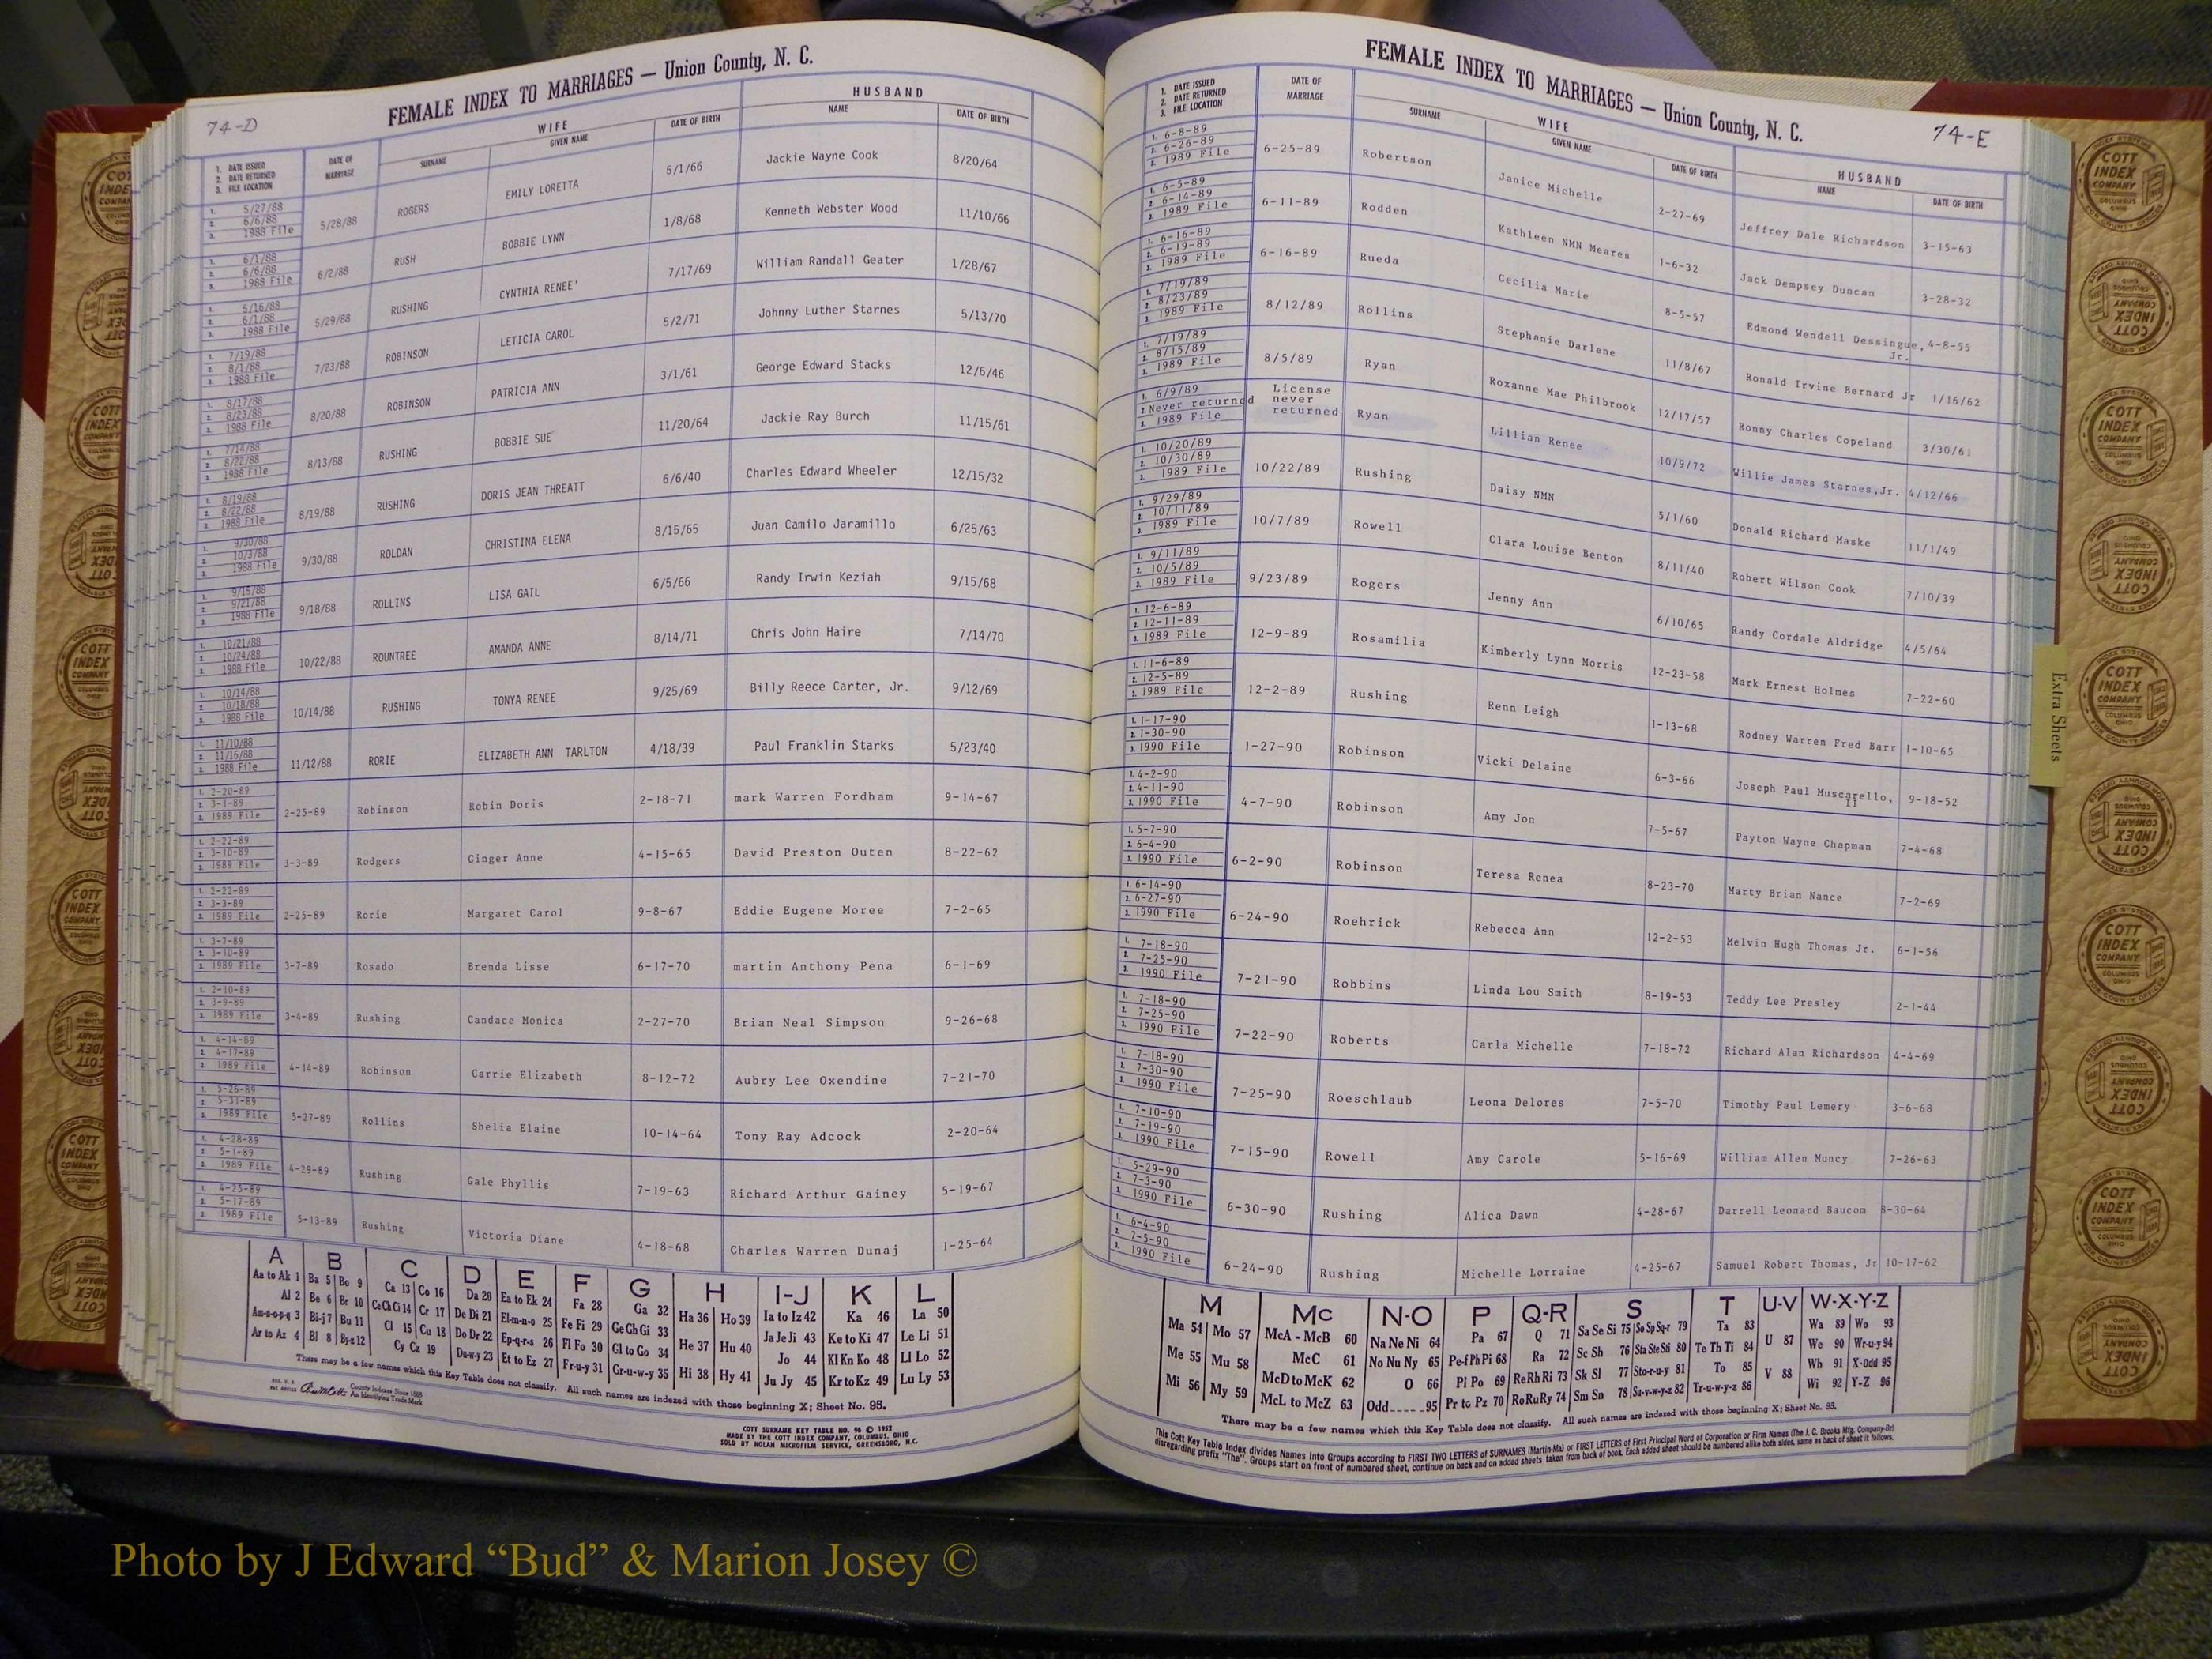 74-D
FEMALE INDEX TO MARRIAGES — Union County, N. C.
1. DATE ISSUED 2. DATE RETURNED 3. FILE LOCATION
DATE OF MARRIAGE
WIFE
SURNAME GIVEN NAME DATE OF BIRTH
HUSBAND
NAME DATE OF BIRTH
1. 5/27/88 2. 6/6/88 3. 1988 File 5/28/88 ROGERS EMILY LORETTA 5/1/66 Jackie Wayne Cook 8/20/64
1. 6/1/88 2. 6/6/88 3. 1988 File 6/2/88 RUSH BOBBIE LYNN 1/8/68 Kenneth Webster Wood 11/10/66
1. 5/16/88 2. 6/1/88 3. 1988 File 5/29/88 RUSHING CYNTHIA RENEE' 7/17/69 William Randall Geater 1/28/67
1. 7/19/88 2. 8/1/88 3. 1988 File 7/23/88 ROBINSON LETICIA CAROL 5/2/71 Johnny Luther Starnes 5/13/70
1. 8/17/88 2. 8/23/88 3. 1988 File 8/20/88 ROBINSON PATRICIA ANN 3/1/61 George Edward Stacks 12/6/46
1. 7/14/88 2. 8/22/88 3. 1988 File 8/13/88 RUSHING BOBBIE SUE 11/20/64 Jackie Ray Burch 11/15/61
1. 8/19/88 2. 8/22/88 3. 1988 File 8/19/88 RUSHING DORIS JEAN THREATT 6/6/40 Charles Edward Wheeler 12/15/32
1. 9/30/88 2. 10/3/88 3. 1988 File 9/30/88 ROLDAN CHRISTINA ELENA 8/15/65 Juan Camilo Jaramillo 6/25/63
1. 9/15/88 2. 9/21/88 3. 1988 File 9/18/88 ROLLINS LISA GAIL 6/5/66 Randy Irwin Keziah 9/15/68
1. 10/21/88 2. 10/24/88 3. 1988 File 10/22/88 ROUNTREE AMANDA ANNE 8/14/71 Chris John Haire 7/14/70
1. 10/14/88 2. 10/18/88 3. 1988 File 10/14/88 RUSHING TONYA RENEE 9/25/69 Billy Reece Carter, Jr. 9/12/69
1. 11/10/88 2. 11/16/88 3. 1988 File 11/12/88 RORIE ELIZABETH ANN TARLTON 4/18/39 Paul Franklin Starks 5/23/40
1. 2-20-89 2. 3-1-89 3. 1989 File 2-25-89 Robinson Robin Doris 2-18-71 mark Warren Fordham 9-14-67
1. 2-22-89 2. 3-10-89 3. 1989 File 3-3-89 Rodgers Ginger Anne 4-15-65 David Preston Outen 8-22-62
1. 2-22-89 2. 3-3-89 3. 1989 File 2-25-89 Rorie Margaret Carol 9-8-67 Eddie Eugene Moree 7-2-65
1. 3-7-89 2. 3-10-89 3. 1989 File 3-7-89 Rosado Brenda Lisse 6-17-70 martin Anthony Pena 6-1-69
1. 2-10-89 2. 3-9-89 3. 1989 File 3-4-89 Rushing Candace Monica 2-27-70 Brian Neal Simpson 9-26-68
1. 4-14-89 2. 4-17-89 3. 1989 File 4-14-89 Robinson Carrie Elizabeth 8-12-72 Aubry Lee Oxendine 7-21-70
1. 5-26-89 2. 5-31-89 3. 1989 File 5-27-89 Rollins Shelia Elaine 10-14-64 Tony Ray Adcock 2-20-64
1. 4-28-89 2. 5-1-89 3. 1989 File 4-29-89 Rushing Gale Phyllis 7-19-63 Richard Arthur Gainey 5-19-67
1. 4-25-89 2. 5-17-89 3. 1989 File 5-13-89 Rushing Victoria Diane 4-18-68 Charles Warren Dunaj 1-25-64
A B C D E F G H I-J K L
Aa to Ak 1 Ba 5 Bo 9 Ca 13 Co 16 Da 20 Ea to Ek 24 Fa 28 Ga 32 Ha 36 Ho 39 Ia to Iz 42 Ka 46 La 50
Al 2 Be 6 Br 10 Ce Ch Ci 14 Cr 17 De Di 21 El-m-n-o 25 Fe Fi 29 Ge Gh Gi 33 He 37 Hu 40 Ja Je Ji 43 Ke to Ki 47 Le Li 51
Am-n-o-p-q 3 Bi-j 7 Bu 11 Cl 15 Cu 18 Do Dr 22 Ep-q-r-s 26 Fl Fo 30 Gl to Go 34 Jo 44 Kl Kn Ko 48 Ll Lo 52
Ar to Az 4 Bl 8 By-z 12 Cy Cz 19 Du-w-y 23 Et to Ez 27 Fr-u-y 31 Gr-u-w-y 35 Hi 38 Hy 41 Ju Jy 45 Kr to Kz 49 Lu Ly 53
There may be a few names which this Key Table does not classify. All such names are indexed with those beginning X; Sheet No. 95.
County Indexes Since 1888
An Identifying Trade Mark
COTT SURNAME KEY TABLE NO. 96 © 1952
MADE BY THE COTT INDEX COMPANY, COLUMBUS, OHIO
SOLD BY NOLAN MICROFILM SERVICE, GREENSBORO, N.C.
74-E
FEMALE INDEX TO MARRIAGES — Union County, N. C.
1. DATE ISSUED 2. DATE RETURNED 3. FILE LOCATION
DATE OF MARRIAGE
WIFE
SURNAME GIVEN NAME DATE OF BIRTH
HUSBAND
NAME DATE OF BIRTH
1. 6-8-89 2. 6-26-89 3. 1989 File 6-25-89 Robertson Janice Michelle 2-27-69 Jeffrey Dale Richardson 3-15-63
1. 6-5-89 2. 6-14-89 3. 1989 File 6-11-89 Rodden Kathleen NMN Meares 1-6-32 Jack Dempsey Duncan 3-28-32
1. 6-16-89 2. 6-19-89 3. 1989 File 6-16-89 Rueda Cecilia Marie 8-5-57 Edmond Wendell Dessingue, Jr. 4-8-55
1. 7/19/89 2. 8/23/89 3. 1989 File 8/12/89 Rollins Stephanie Darlene 11/8/67 Ronald Irvine Bernard Jr 1/16/62
1. 7/19/89 2. 8/15/89 3. 1989 File 8/5/89 Ryan Roxanne Mae Philbrook 12/17/57 Ronny Charles Copeland 3/30/61
1. 6/9/89 2. Never returned 3. 1989 File License never returned Ryan Lillian Renee 10/9/72 Willie James Starnes,Jr. 4/12/66
1. 10/20/89 2. 10/30/89 3. 1989 File 10/22/89 Rushing Daisy NMN 5/1/60 Donald Richard Maske 11/1/49
1. 9/29/89 2. 10/11/89 3. 1989 File 10/7/89 Rowell Clara Louise Benton 8/11/40 Robert Wilson Cook 7/10/39
1. 9/11/89 2. 10/5/89 3. 1989 File 9/23/89 Rogers Jenny Ann 6/10/65 Randy Cordale Aldridge 4/5/64
1. 12-6-89 2. 12-11-89 3. 1989 File 12-9-89 Rosamilia Kimberly Lynn Morris 12-23-58 Mark Ernest Holmes 7-22-60
1. 11-6-89 2. 12-5-89 3. 1989 File 12-2-89 Rushing Renn Leigh 1-13-68 Rodney Warren Fred Barr 1-10-65
1. 1-17-90 2. 1-30-90 3. 1990 File 1-27-90 Robinson Vicki Delaine 6-3-66 Joseph Paul Muscarello, II 9-18-52
1. 4-2-90 2. 4-11-90 3. 1990 File 4-7-90 Robinson Amy Jon 7-5-67 Payton Wayne Chapman 7-4-68
1. 5-7-90 2. 6-4-90 3. 1990 File 6-2-90 Robinson Teresa Renea 8-23-70 Marty Brian Nance 7-2-69
1. 6-14-90 2. 6-27-90 3. 1990 File 6-24-90 Roehrick Rebecca Ann 12-2-53 Melvin Hugh Thomas Jr. 6-1-56
1. 7-18-90 2. 7-25-90 3. 1990 File 7-21-90 Robbins Linda Lou Smith 8-19-53 Teddy Lee Presley 2-1-44
1. 7-18-90 2. 7-25-90 3. 1990 File 7-22-90 Roberts Carla Michelle 7-18-72 Richard Alan Richardson 4-4-69
1. 7-18-90 2. 7-30-90 3. 1990 File 7-25-90 Roeschlaub Leona Delores 7-5-70 Timothy Paul Lemery 3-6-68
1. 7-10-90 2. 7-19-90 3. 1990 File 7-15-90 Rowell Amy Carole 5-16-69 William Allen Muncy 7-26-63
1. 5-29-90 2. 7-3-90 3. 1990 File 6-30-90 Rushing Alica Dawn 4-28-67 Darrell Leonard Baucom 8-30-64
1. 6-4-90 2. 7-5-90 3. 1990 File 6-24-90 Rushing Michelle Lorraine 4-25-67 Samuel Robert Thomas, Jr 10-17-62
M Mc N-O P Q-R S T U-V W-X-Y-Z
Ma 54 Mo 57 McA - McB 60 Na Ne Ni 64 Pa 67 Q 71 Sa Se Si 75 So Sp Sq-r 79 Ta 83 U 87 Wa 89 Wo 93
Me 55 Mu 58 McC 61 No Nu Ny 65 Pe-f Ph Pi 68 Ra 72 Sc Sh 76 Sta Ste Sti 80 Te Th Ti 84 We 90 Wr-u-y 94
McD to McK 62 O 66 Pl Po 69 Re Rh Ri 73 Sk Sl 77 Sto-r-u-y 81 To 85 V 88 Wh 91 X-Odd 95
Mi 56 My 59 McL to McZ 63 Odd-----95 Pr to Pz 70 Ro Ru Ry 74 Sm Sn 78 Su-v-w-y-z 82 Tr-u-w-y-z 86 Wi 92 Y-Z 96
There may be a few names which this Key Table does not classify. All such names are indexed with those beginning X; Sheet No. 95.
This Cott Key Table Index divides Names Into Groups according to FIRST TWO LETTERS of SURNAMES (Martin-Ma) or FIRST LETTERS of First Principal Word of Corporation or Firm Names (The J. C. Brooks Mfg. Company-Br)
disregarding prefix "The". Groups start on front of numbered sheet, continue on back and on added sheets taken from back of book. Each added sheet should be numbered alike both sides, same as back of sheet it follows.
Extra Sheets
COTT INDEX COMPANY COLUMBUS OHIO
Photo by J Edward “Bud” & Marion Josey ©